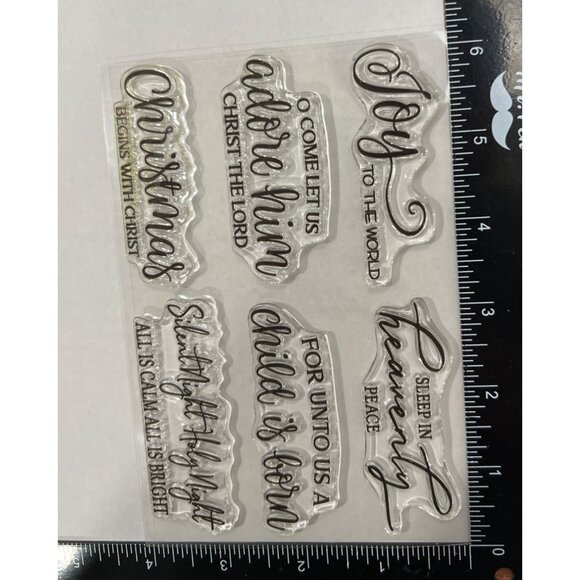 Joy
TO THE WORLD
SLEEP IN
heavenly
PEACE
O COME LET US
adore him
CHRIST THE LORD
FOR UNTO US A
child is born
Christmas
BEGINS WITH CHRIST
Silent Night Holy Night
ALL IS CALM ALL IS BRIGHT
6
5
4
3
2
1
0
1
2
3
4
5